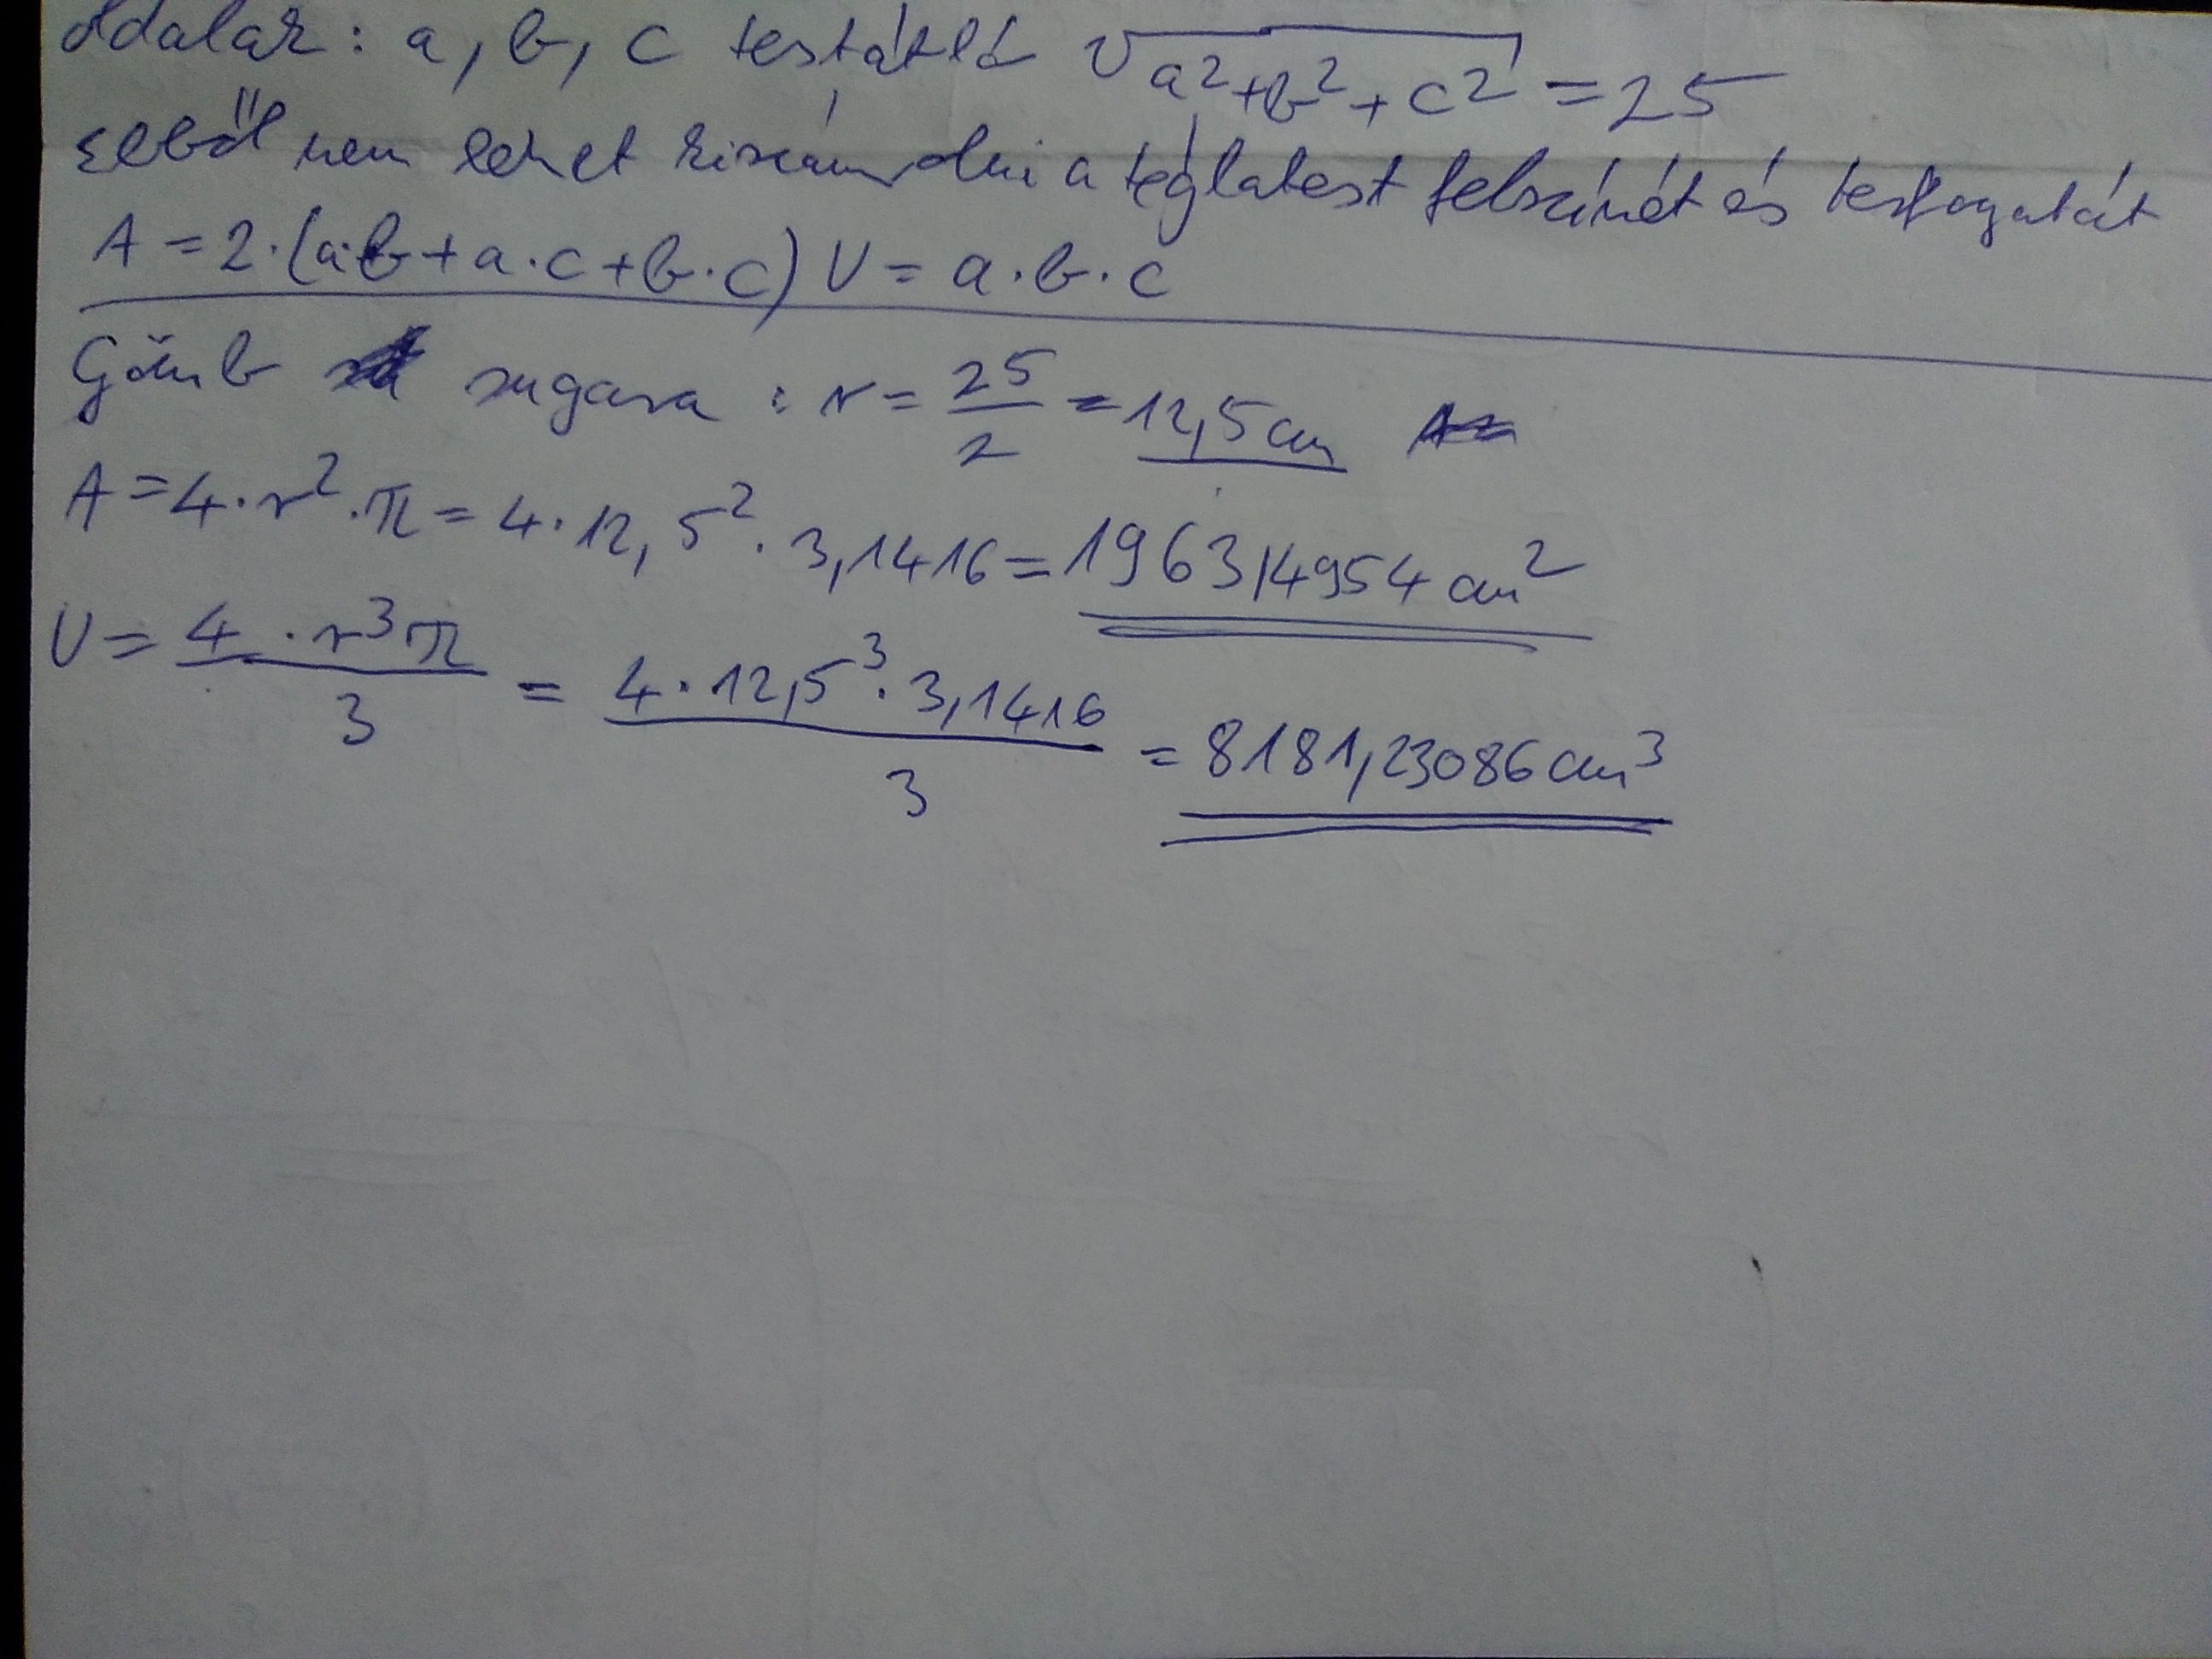 oldalak: a, b, c testátló √a²+b²+c² = 25
Ebből nem lehet kiszámolni a téglatest felszínét és térfogatát
A = 2·(a·b+a·c+b·c) V = a·b·c
Gömb sugara: r = 25/2 = 12,5 cm
A = 4·r²·π = 4·12,5²·3,1416 = 1963,4954 cm²
V = 4·r³π/3 = 4·12,5³·3,1416/3 = 8181,23086 cm³